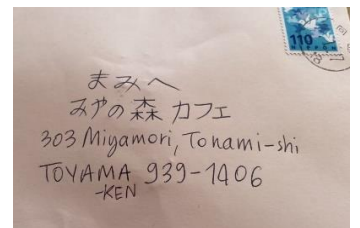 110
NIPPON
まみへ
みやの森 カフェ
303 Miyamori, Tonami-shi
TOYAMA 939-1406
-KEN